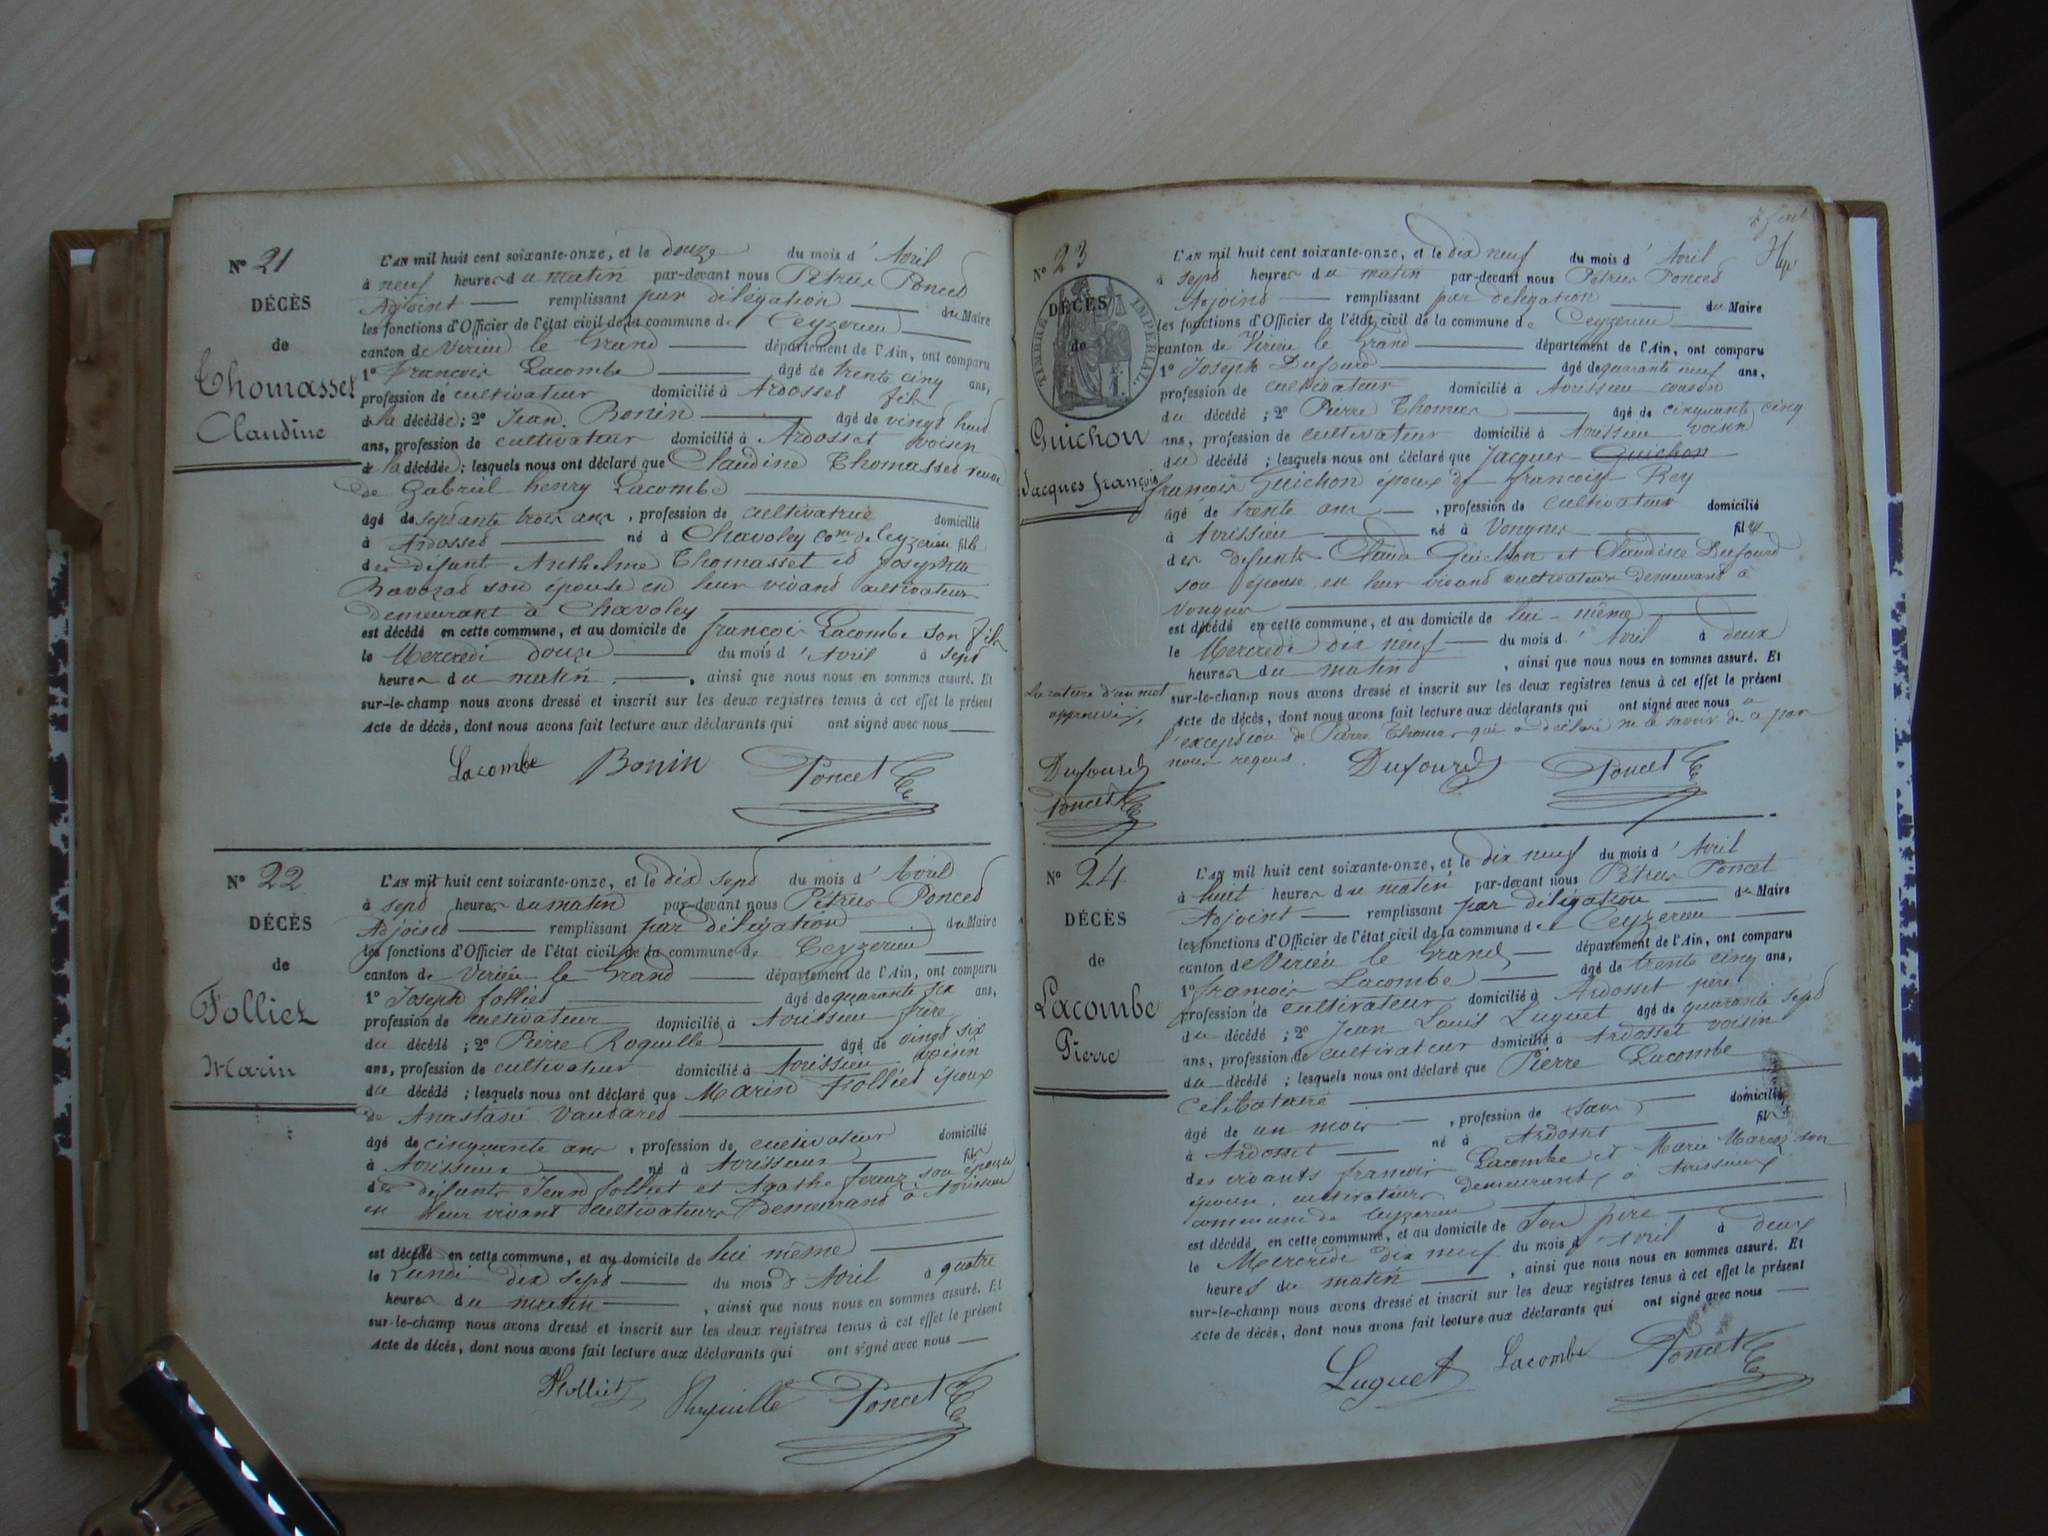 N° 21
DÉCÈS
de
Thomasset
Claudine
L'AN mil huit cent soixante-onze, et le douze du mois d' Avril
à neuf heures du matin par-devant nous Pétrus Poncet
Adjoint remplissant par délégation du Maire
les fonctions d'Officier de l'état civil de la commune de Ceyzerieu
canton de Virieu le Grand département de l'Ain, ont comparu
1° françois Lacombe âgé de trente cinq ans,
profession de cultivateur domicilié à Ardosset fils
de la décédée ; 2° Jean Bonin âgé de vingt huit
ans, profession de cultivateur domicilié à Ardosset voisin
de la décédée ; lesquels nous ont déclaré que Claudine Thomasset veuve
de Gabriel henry Lacombe
âgé de septante trois ans, profession de cultivatrice domicilié
à Ardosset né à Chavoley Cone de Ceyzerieu fille
des défunt Anthelme Thomasset et Josephte
son épouse en leur vivant cultivateurs
demeurant à Chavoley
est décédé en cette commune, et au domicile de françois Lacombe son fils
le Mercredi douze du mois d' Avril à sept
heures du matin, ainsi que nous nous en sommes assuré. Et
sur-le-champ nous avons dressé et inscrit sur les deux registres tenus à cet effet le présent
Acte de décès, dont nous avons fait lecture aux déclarants qui ont signé avec nous
Lacombe Bonin Poncet
N° 22
DÉCÈS
de
Folliet
Marin
L'AN mil huit cent soixante-onze, et le dix sept du mois d' Avril
à sept heures du matin par-devant nous Pétrus Poncet
Adjoint remplissant par délégation du Maire
les fonctions d'Officier de l'état civil de la commune de Ceyzerieu
canton de Virieu le Grand département de l'Ain, ont comparu
1° Joseph folliet âgé de quarante six ans,
profession de cultivateur domicilié à Avrissieu frère
du décédé ; 2° Pierre Roquille âgé de vingt six
ans, profession de cultivateur domicilié à Avrissieu voisin
du décédé ; lesquels nous ont déclaré que Marin Folliet époux
de Anastasie Vaudaret
âgé de cinquante ans, profession de cultivateur domicilié
à Avrissieux né à Avrissieux fils
des défunts Jean folliet et Agathe son épouse
en leur vivant cultivateurs demeurant à Avrissieu
est décédé en cette commune, et au domicile de lui même
le Lundi dix sept du mois d' Avril à quatre
heures du matin, ainsi que nous nous en sommes assuré. Et
sur-le-champ nous avons dressé et inscrit sur les deux registres tenus à cet effet le présent
Acte de décès, dont nous avons fait lecture aux déclarants qui ont signé avec nous
Folliet Roquille Poncet
N° 23
DÉCÈS
de
TIMBRE IMPERIAL
Guichon
Jacques françois
L'AN mil huit cent soixante-onze, et le dix neuf du mois d' Avril
à sept heures du matin par-devant nous Pétrus Poncet
Adjoint remplissant par délégation du Maire
les fonctions d'Officier de l'état civil de la commune de Ceyzerieu
canton de Virieu le Grand département de l'Ain, ont comparu
1° Joseph Dufourd âgé de quarante neuf ans,
profession de cultivateur domicilié à Avrissieu cousin
du décédé ; 2° Pierre Thomas âgé de cinquante cinq
ans, profession de cultivateur domicilié à Avrissieu voisin
du décédé ; lesquels nous ont déclaré que Jacques Guichon
françois Guichon époux de françoise Rey
âgé de trente ans, profession de cultivateur domicilié
à Avrissieu né à Vongnes fils
des défunts Claude Guichon et Claudine Dufourd
son épouse en leur vivant cultivateurs demeurant à
Vongnes
est décédé en cette commune, et au domicile de lui-même
le Mercredi dix neuf du mois d' Avril à deux
heures du matin, ainsi que nous nous en sommes assuré. Et
sur-le-champ nous avons dressé et inscrit sur les deux registres tenus à cet effet le présent
Acte de décès, dont nous avons fait lecture aux déclarants qui ont signé avec nous à
l'exception de Pierre Thomas qui a déclaré ne le savoir de ce par
nous requis. Dufourd Poncet
La rature d'un mot
approuvée
Dufourd
Poncet
N° 24
DÉCÈS
de
Lacombe
Pierre
L'AN mil huit cent soixante-onze, et le dix neuf du mois d' Avril
à huit heures du matin par-devant nous Pétrus Poncet
Adjoint remplissant par délégation du Maire
les fonctions d'Officier de l'état civil de la commune de Ceyzerieu
canton de Virieu le Grand département de l'Ain, ont comparu
1° françois Lacombe âgé de trente cinq ans,
profession de cultivateur domicilié à Ardosset père
du décédé ; 2° Jean Louis Luquet âgé de quarante sept
ans, profession de cultivateur domicilié à Ardosset voisin
du décédé ; lesquels nous ont déclaré que Pierre Lacombe
célibataire
âgé de un mois, profession de sans domicilié
à Ardosset né à Ardosset fils
des vivants françois Lacombe et Marie son
épouse cultivateurs demeurants à Avrissieux
commune de Ceyzerieu
est décédé en cette commune, et au domicile de son père
le Mercredi dix neuf du mois d' Avril à deux
heures du matin, ainsi que nous nous en sommes assuré. Et
sur-le-champ nous avons dressé et inscrit sur les deux registres tenus à cet effet le présent
Acte de décès, dont nous avons fait lecture aux déclarants qui ont signé avec nous
Luquet Lacombe Poncet